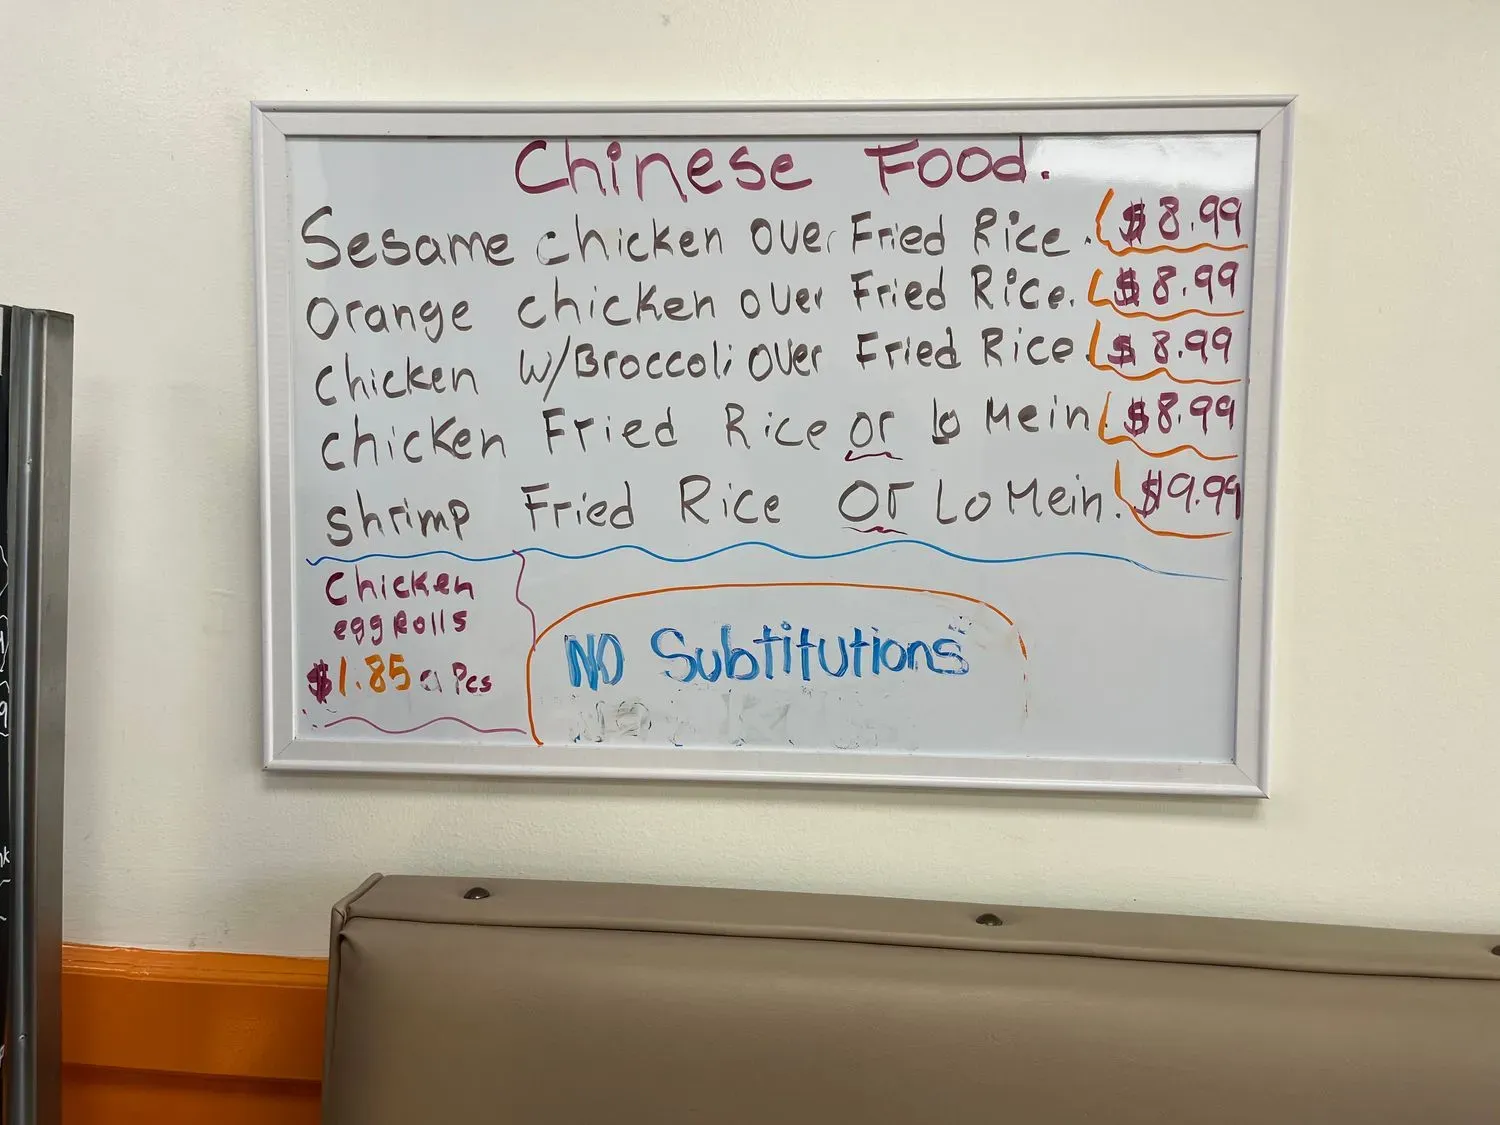 Chinese Food.
Sesame chicken over Fried Rice. $8.99
Orange chicken over Fried Rice. $8.99
chicken w/Broccoli over Fried Rice. $8.99
chicken Fried Rice or lo Mein. $8.99
shrimp Fried Rice or Lo Mein. $9.99
Chicken
egg Rolls
$1.85 a Pcs
NO Subtitutions